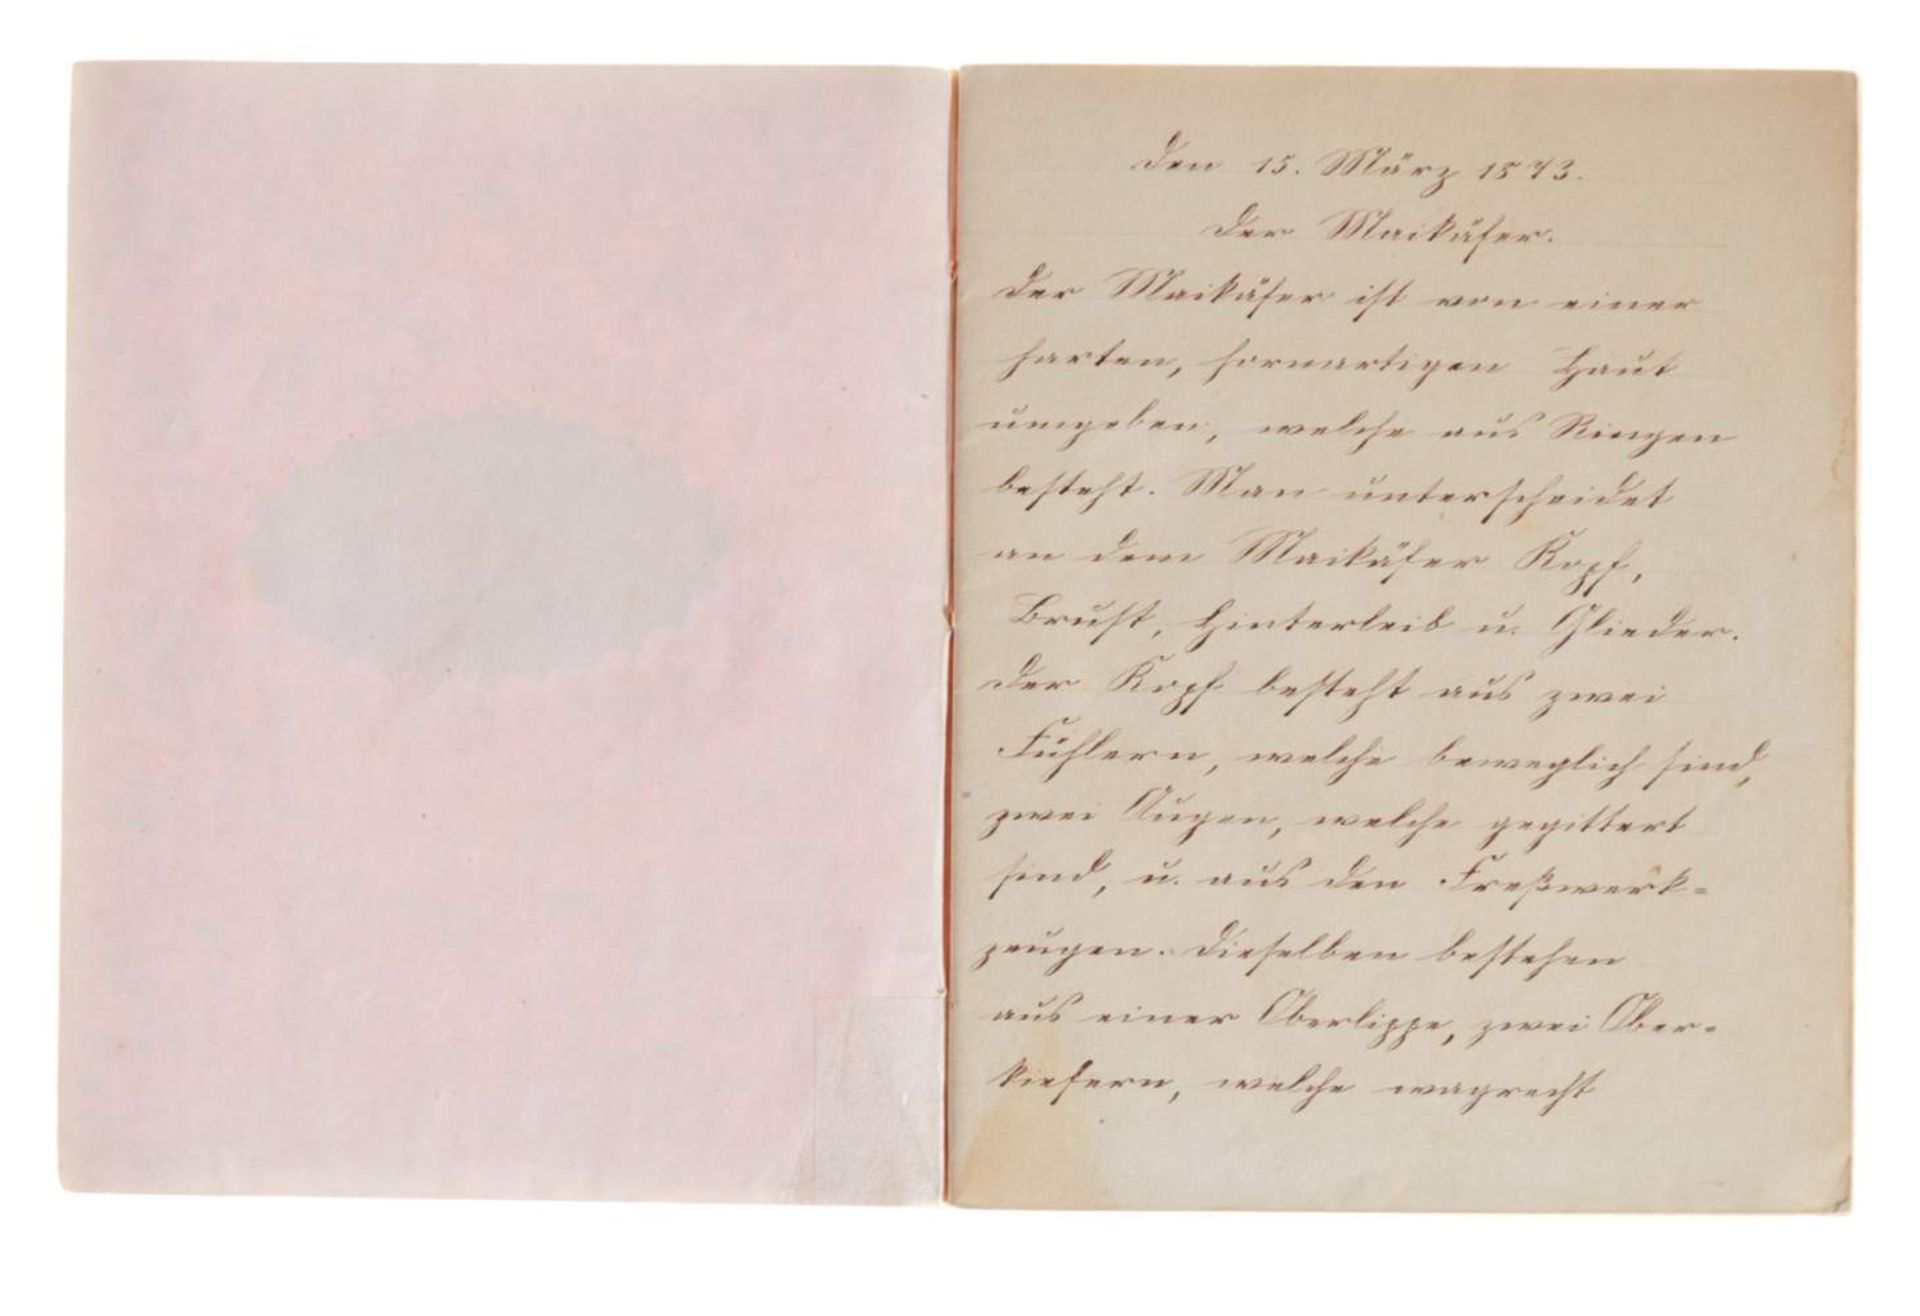 Den 15. März 1873.
Der Maikäfer.
Der Maikäfer ist von einer
harten, hornartigen Haut
umgeben, welche aus Ringen
besteht. Man unterscheidet
an dem Maikäfer Kopf,
Brust, Hinterleib u. Glieder.
Der Kopf besteht aus zwei
Fühlern, welche beweglich sind,
zwei Augen, welche gegittert
sind, u. aus den Freßwerk-
zeugen. Dieselben bestehen
aus einer Oberlippe, zwei Ober-
kiefern, welche wagrecht